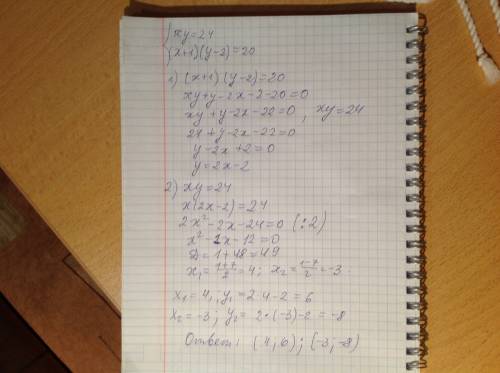 xy=24
(x+1)(y-2)=20
1) (x+1)(y-2)=20
xy+y-2x-2-20=0
xy+y-2x-22=0, xy=24
24+y-2x-22=0
y-2x+2=0
y=2x-2
2) xy=24
x(2x-2)=24
2x²-2x-24=0 (:2)
x²-1x-12=0
D=1+48=49
x₁=(1+7)/2=4; x₂=(1-7)/2=-3
x₁=4, y₁=2·4-2=6
x₂=-3; y₂=2·(-3)-2=-8
Ответ: (4,6); (-3;-8)